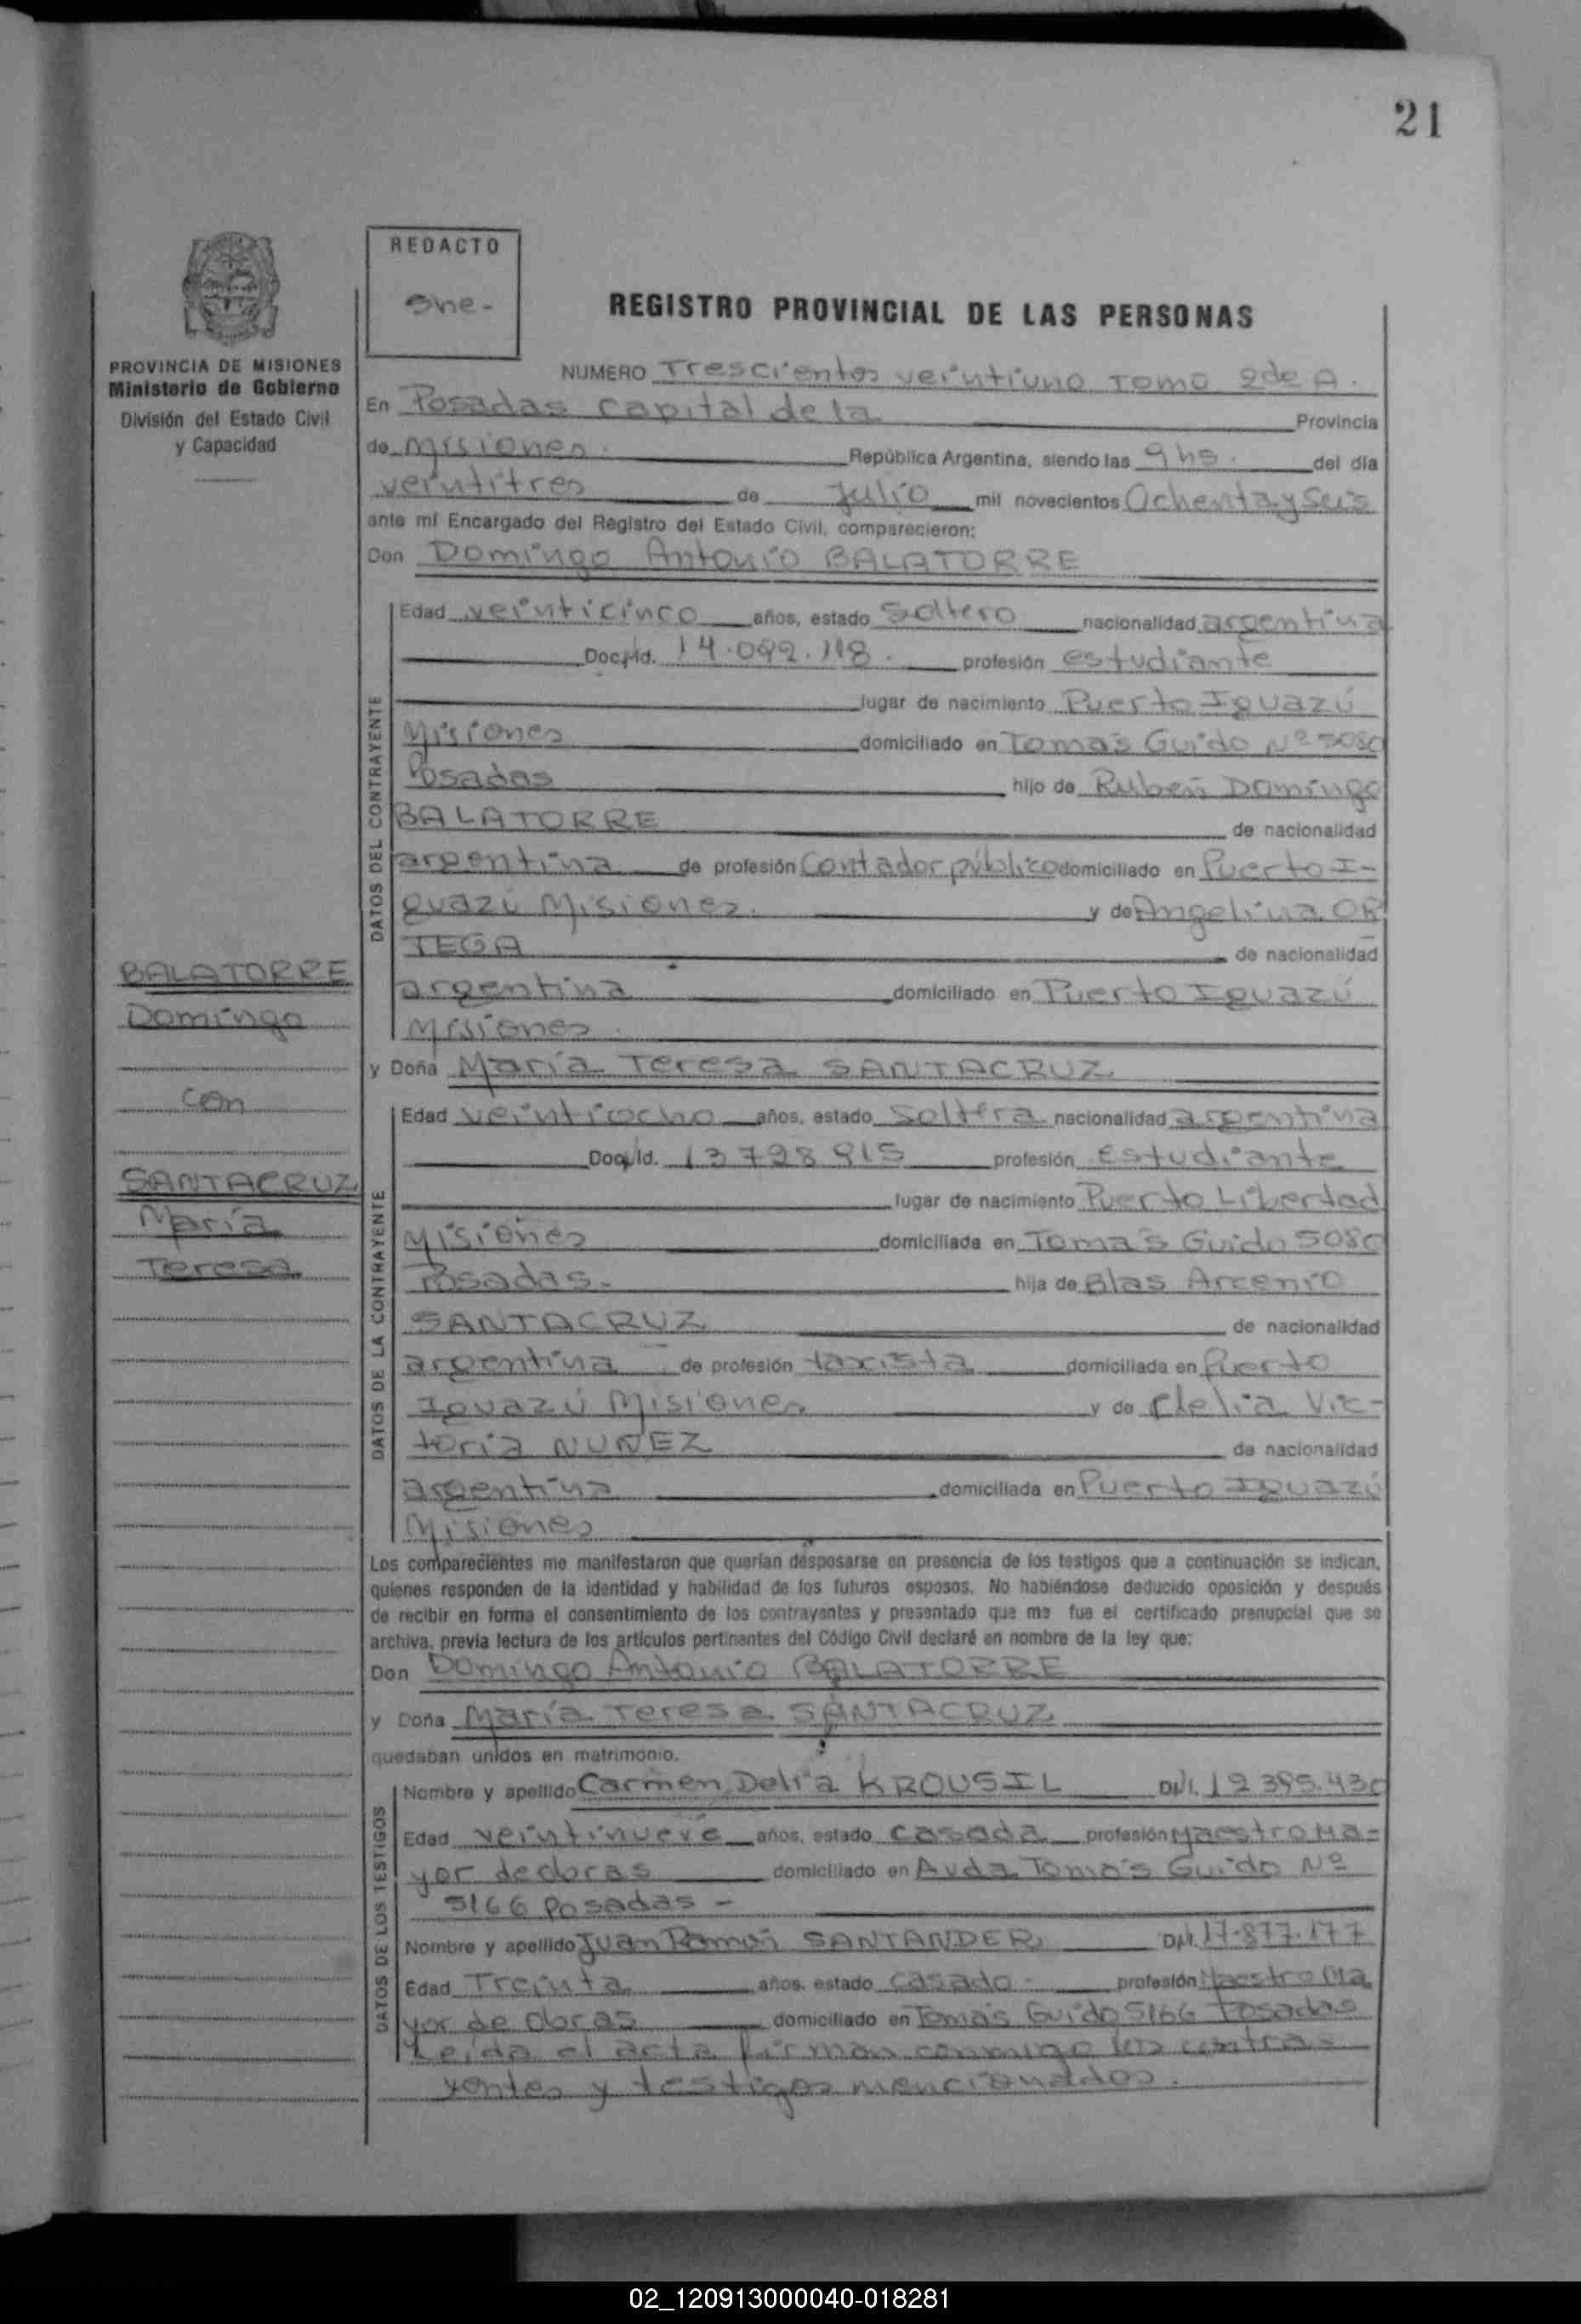 21
REDACTO
one-
REGISTRO PROVINCIAL DE LAS PERSONAS
PROVINCIA DE MISIONES
Ministerio de Gobierno
División del Estado Civil
y Capacidad
NUMERO Trescientos veintiuno Tomo 2de A.
En Posadas capital de la Provincia
de Misiones. República Argentina, siendo las 9 hs. del día
veintitres de Julio mil novecientos Ochenta y Seis
ante mí Encargado del Registro del Estado Civil, comparecieron:
Don Domingo Antonio BALATORRE
DATOS DEL CONTRAYENTE
Edad veinticinco años, estado Soltero nacionalidad argentina
Doc. Id. 14.092.118. profesión estudiante
lugar de nacimiento Puerto Iguazú
Misiones domiciliado en Tomás Guido Nº 5080
Posadas hijo de Rubén Domingo
BALATORRE de nacionalidad
argentina de profesión Contador público domiciliado en Puerto I-
guazú Misiones. y de Angelina OR
TEGA de nacionalidad
argentina domiciliado en Puerto Iguazú
Misiones.
y Doña María Teresa SANTACRUZ
DATOS DE LA CONTRAYENTE
Edad veintiocho años, estado Soltera nacionalidad argentina
Doc. Id. 13 798 915 profesión estudiante
lugar de nacimiento Puerto Libertad
Misiones domiciliada en Tomás Guido 5080
Posadas. hija de Blas Arcenio
SANTACRUZ de nacionalidad
argentina de profesión taxista domiciliada en Puerto
Iguazú Misiones y de Clelia Vic-
toria NUÑEZ de nacionalidad
argentina domiciliada en Puerto Iguazú
Misiones
BALATORRE
Domingo
con
SANTACRUZ
María
Teresa
Los comparecientes me manifestaron que querían desposarse en presencia de los testigos que a continuación se indican,
quienes responden de la identidad y habilidad de los futuros esposos. No habiéndose deducido oposición y después
de recibir en forma el consentimiento de los contrayentes y presentado que me fue el certificado prenupcial que se
archiva, previa lectura de los artículos pertinentes del Código Civil declaré en nombre de la ley que:
Don Domingo Antonio BALATORRE
y Doña María Teresa SANTACRUZ
quedaban unidos en matrimonio.
DATOS DE LOS TESTIGOS
Nombre y apellido Carmen Delia KROUSIL DNI. 12 395.430
Edad veintinueve años, estado casada profesión Maestro Ma-
yor de obras domiciliado en Avda Tomás Guido Nº
5166 Posadas -
Nombre y apellido Juan Ramón SANTANDER DNI. 17.877.177
Edad Treinta años, estado casado. profesión Maestro Ma
yor de Obras domiciliado en Tomás Guido 5166 Posadas
Leida el acta firman conmigo los contra-
yentes y testigos mencionados.
02_120913000040-018281